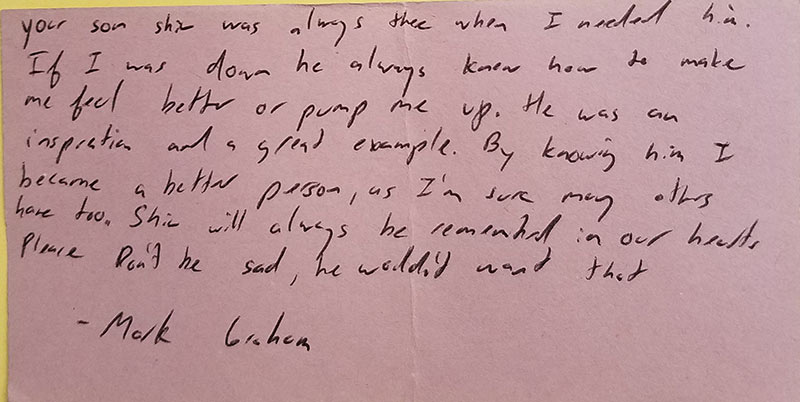 your son shiv was always thee when I needed him.
If I was down he always knew how to make
me feel better or pump me up. He was an
inspration and a great example. By knowing him I
became a better person, as I'm sure many others
have too. Shiv will always be rememberd in our hearts
Please Don't be sad, he wouldn't want that
- Mark Graham